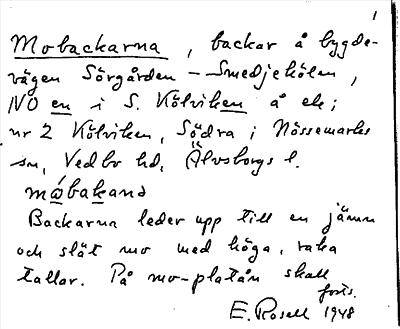 1
Mobackarna, backar å bygde-
vägen Sörgården – Smedjekölen,
NO en i S. Kölviken å ek;
nr 2 Kölviken, Södra i Nössemarks
sn, Vedbo hd, Älvsborgs l.
måbakana
Backarna leder upp till en jämn
och slät mo med höga, raka
tallar. På mo-platån skall
forts.
E. Rosell 1948